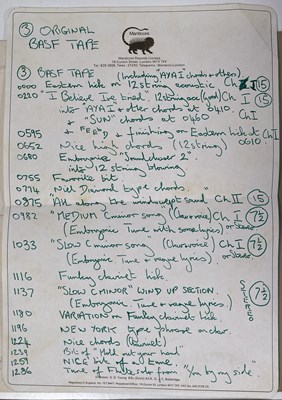 ③ ORIGINAL
BASF TAPE
Manticore
Manticore Records Limited
③ BASF TAPE (Including AYA I chords + others)
0000 Eastern lick on 12 string acoustic Ch I 15
0210 "I Believe I've tried". 12 string acc (good) Ch I 15
into "AYA I + other chords at 0410.
+ "SUN" chords at 0460 Ch I
0595 + "FEED + finishing on Eastern lick at Ch I
0652 Nice high chords (12 string) 0610.
0680 Embryonic "Soundchaser 2".
into 12 string blowing
0755 Favorite bit
0794 Neil Diamond type chords
0875 "All along the windswept sand" Ch I 15
0982 "MEDIUM C minor song (Clear voice) Ch I 7½
(Embryonic Tune with some lyrics) or Stereo
1033 "SLOW C minor song (Clear voice) Ch I 7½
(Embryonic Tune + vague lyrics) or Stereo
1116 Funky clarinet lick
1137 "SLOW C MINOR" WIND UP SECTION. STEREO 7½
(Embryonic Tune + vague lyrics)
1180 VARIATION on Funky clarinet lick
1196 NEW YORK type phrase on clar.
1224 Nice chords (Clarinet)
1239 Bit of "Hold out your hand"
1257 NICE bit of a tune
1286 Tune of Flute solo from "You by my side.